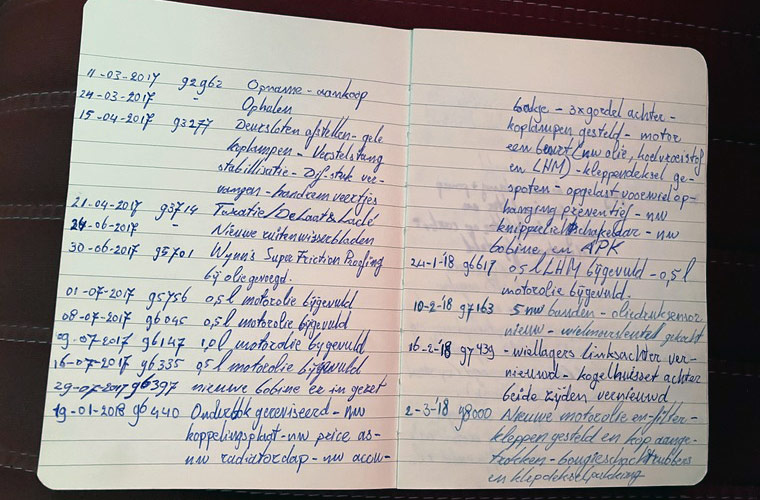 11-03-2017 92962 Opname - aankoop
24-03-2017 " Ophalen
15-04-2017 93277 Deursloten afstellen - gele
koplampen - Verstelstang
stabillisatie - Diff. stuk ver-
vangen - handrem veertjes
21-04-2017 93714 Taxatie/DeLaat&Laclé
24-06-2017 " Nieuwe ruitenwisserbladen
30-06-2017 95701 Wynn's Super Friction Proofing
bij olie gevoegd.
01-07-2017 95756 0,5 l motorolie bijgevuld
08-07-2017 96045 0,5 l motorolie bijgevuld
09-07-2017 96147 1,0 l motorolie bijgevuld
16-07-2017 96335 0,5 l motorolie bijgevuld
29-07-2017 96397 nieuwe bobine er in gezet
19-01-2018 96440 Onderblok gereviseerd - nw
koppelingsplaat - nw price as -
nw radiatordap - nw accu -
bakje - 3x gordel achter -
koplampen gesteld - motor
een beurt (nw olie, koelvloeistof
en LHM) - kleppendeksel ge-
spoten - opgelast voorwiel op-
hanging preventief - nw
knipperlicht schakelaar - nw
bobine, en APK
24-1-'18 96619 0,5 l LHM bijgevuld - 0,5 l
motorolie bijgevuld.
10-2-'18 97163 5 nw banden - oliedruksensor
nieuw - wielmoersleutel gekocht
16-2-'18 97439 - wiellagers linksachter ver-
nieuwd - kogelhuisset achter
beide zijden vernieuwd
2-3-'18 98000 Nieuwe motorolie en filter -
kleppen gesteld en kop aange-
trokken - bougieschachtrubbers
en klepdekselpakking